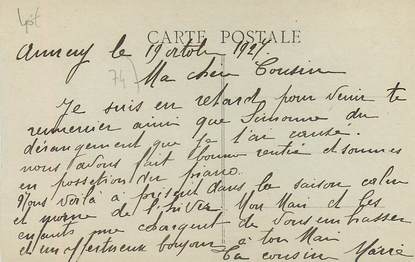 CARTE POSTALE
Annecy le 19 octobre 1927
74
Ma chère Cousine
Je suis en retard pour venir te
remercier ainsi que Simonne du
dérangement que je t'ai causé.
nous avons fait bonne rentrée et sommes
en possession du piano.
Nous voilà à présent dans la saison calme
et morne de l'hiver Mon Mari et les
enfants me chargent de vous embrasser
et un affectueux bonjour à ton Mari
ta cousine Marie